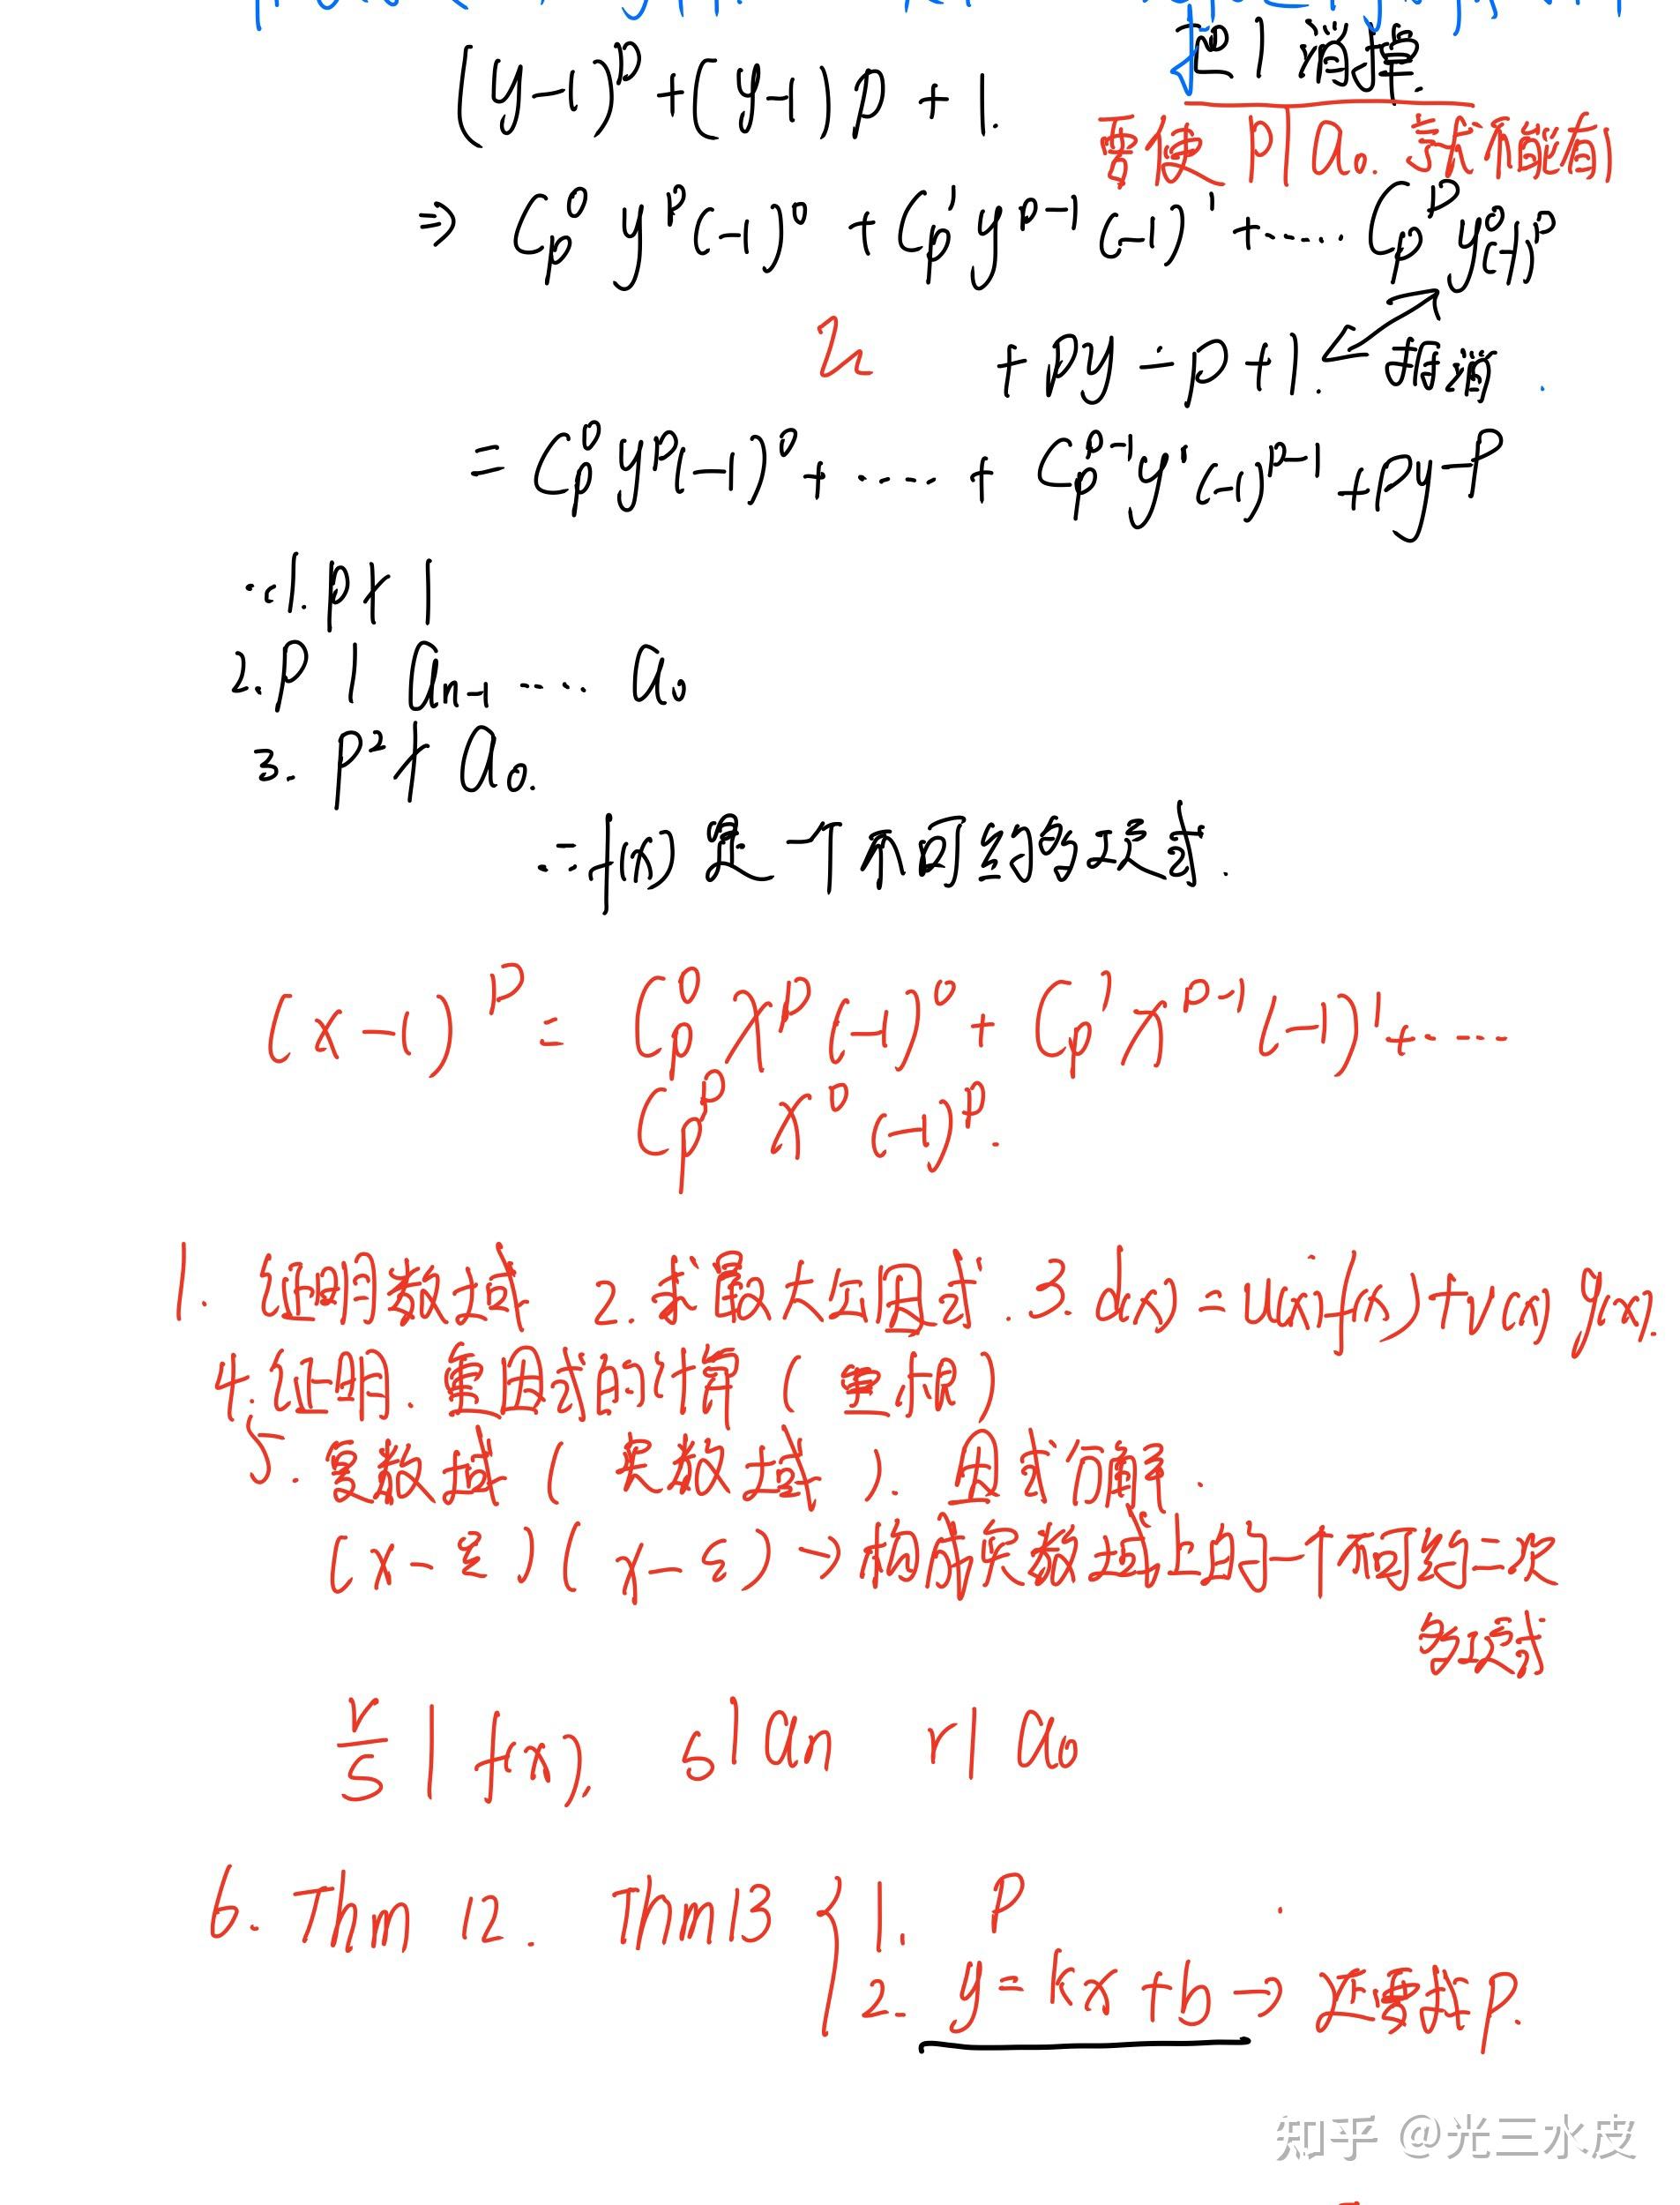 把1消掉.
(y-1)^p + (y-1)p + 1.
要使 p | a₀.
⇒ C_p^0 y^p (-1)^0 + C_p^1 y^{p-1} (-1)^1 + ····· C_p^p y^0 (-1)^p
+ py - p + 1. 抵消.
= C_p^0 y^p (-1)^0 + ····· + C_p^{p-1} y^1 (-1)^{p-1} + py - p
∵ 1. p ∤ 1
2. p | a_{n-1} ····· a₀
3. p² ∤ a₀.
∴ f(x) 是一个不可约多项式.
(x-1)^p = C_p^0 x^p (-1)^0 + C_p^1 x^{p-1} (-1)^1 + ·····
C_p^p x^0 (-1)^p.
1. 证明数域 2. 求最大公因式. 3. d(x) = u(x)f(x) + v(x)g(x).
4. 证明. 重因式的计算 (重根)
5. 复数域 (实数域). 因式分解.
→ 构成实数域上的一个不可约二次
多项式
r/s | f(x), s | aₙ r | a₀
6. Thm 12. Thm 13 { 1. P
2. y = kx + b → 还要找 p.
知乎 @光三水皮